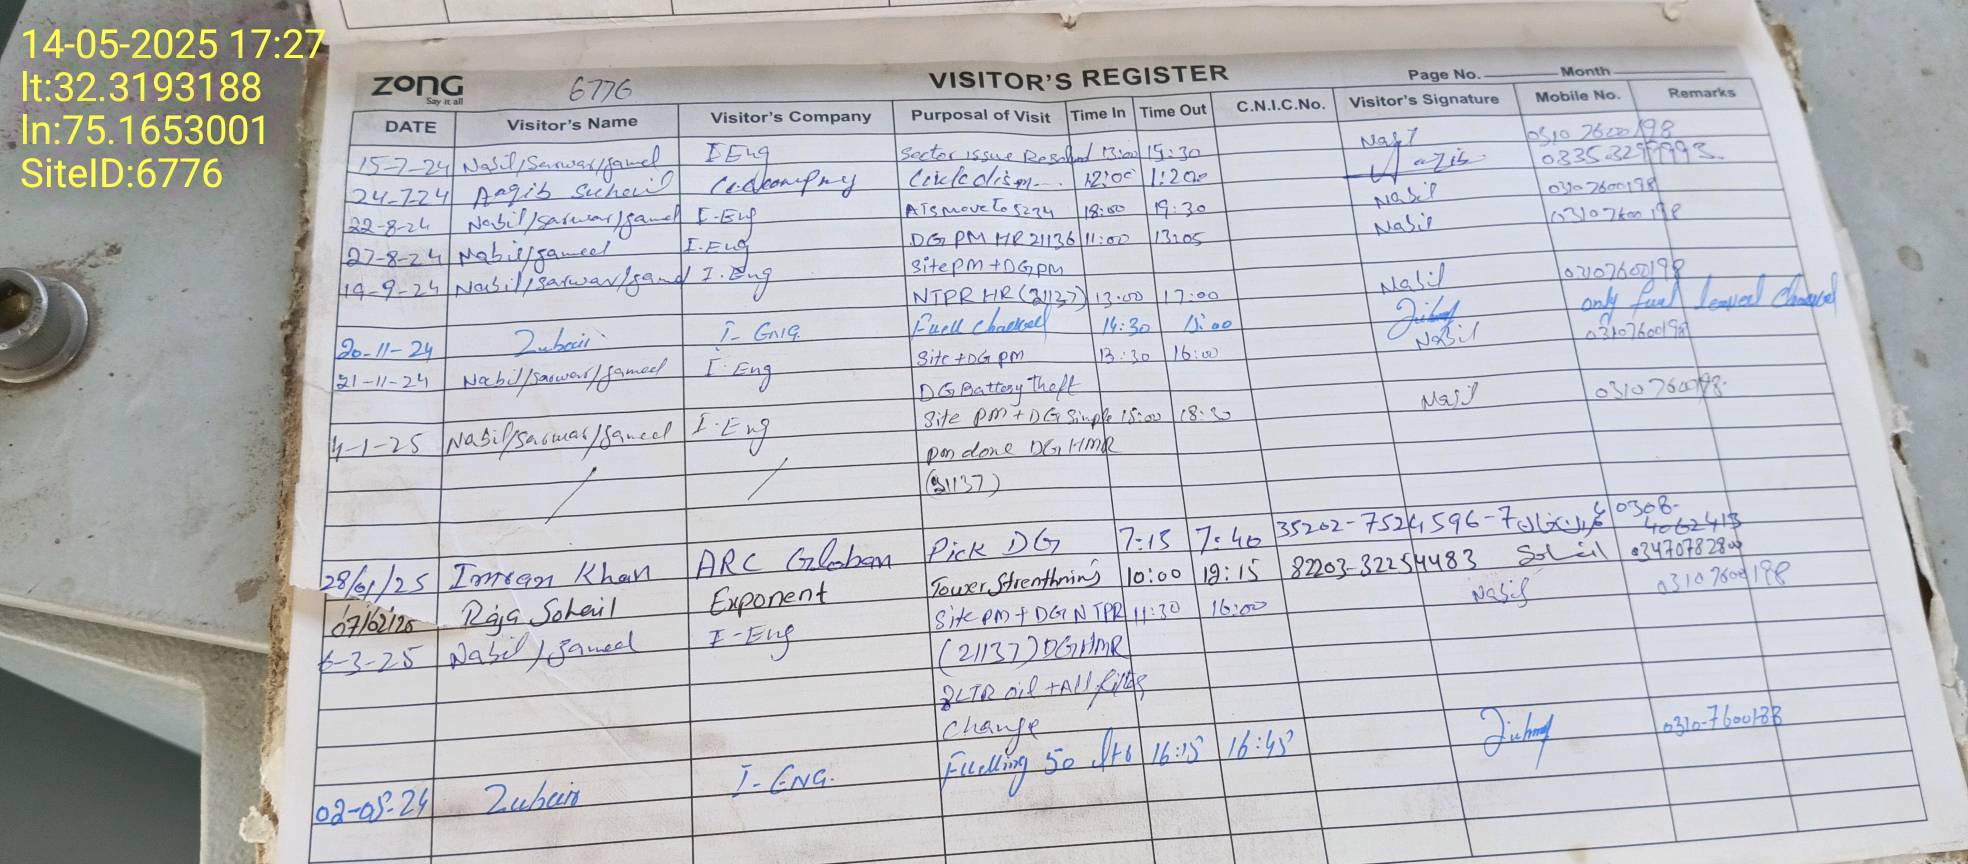 14-05-2025 17:27
lt:32.3193188
ln:75.1653001
SiteID:6776
ZONG
Say it all
6776
VISITOR'S REGISTER
Page No. Month
DATE Visitor's Name Visitor's Company Purposal of Visit Time In Time Out C.N.I.C.No. Visitor's Signature Mobile No. Remarks
15-7-24 Nabil/Sarwar/Jameel I Eng Sector issue Resolved 13:00 15:30 0310 7600198
24-7-24 Aaqib Suhail 12:00 1:20
22-8-24 Nabil/Sarwar/Jameel I-Eng ATS move to 5234 18:00 19:30 Nabil 03107600198
27-8-24 Nabil/Jameel I.Eng DG PM HR 21136 11:00 13:05 Nabil 03107600198
19-9-24 Nabil/Sarwar/Jameel I-Eng Site PM + DG PM
NTPR HR (21137) 13:00 17:00 Nabil 03107600198
20-11-24 Zubair I-ENG. Fuell Checked 14:30 15:00 only fuel
21-11-24 Nabil/Sarwar/Jameel I-Eng Site + DG PM 13:30 16:00 Nabil 03107600198
DG Battery Theft
4-1-25 Nabil/Sarwar/Jameel I.Eng Site PM + DG Simple 15:00 18:30 Nabil 03107600198
PM done DG HMR
(21137)
28/01/25 Imran Khan ARC Pick DG 7:15 7:40 35202-7524596-7 0308-4062413
07/02/25 Raja Sohail Exponent Tower Strenthning 10:00 19:15 82203-32254483 Sohail
6-3-25 Nabil/Jameel I-Eng Site PM + DG NTPR 11:30 16:00 Nabil 03107600198
(21137) DG HMR
8LTR oil + All filters
Change
02-05-24 Zubair I-ENG. Fuelling 50 ltrs 16:15 16:45 0310-7600188